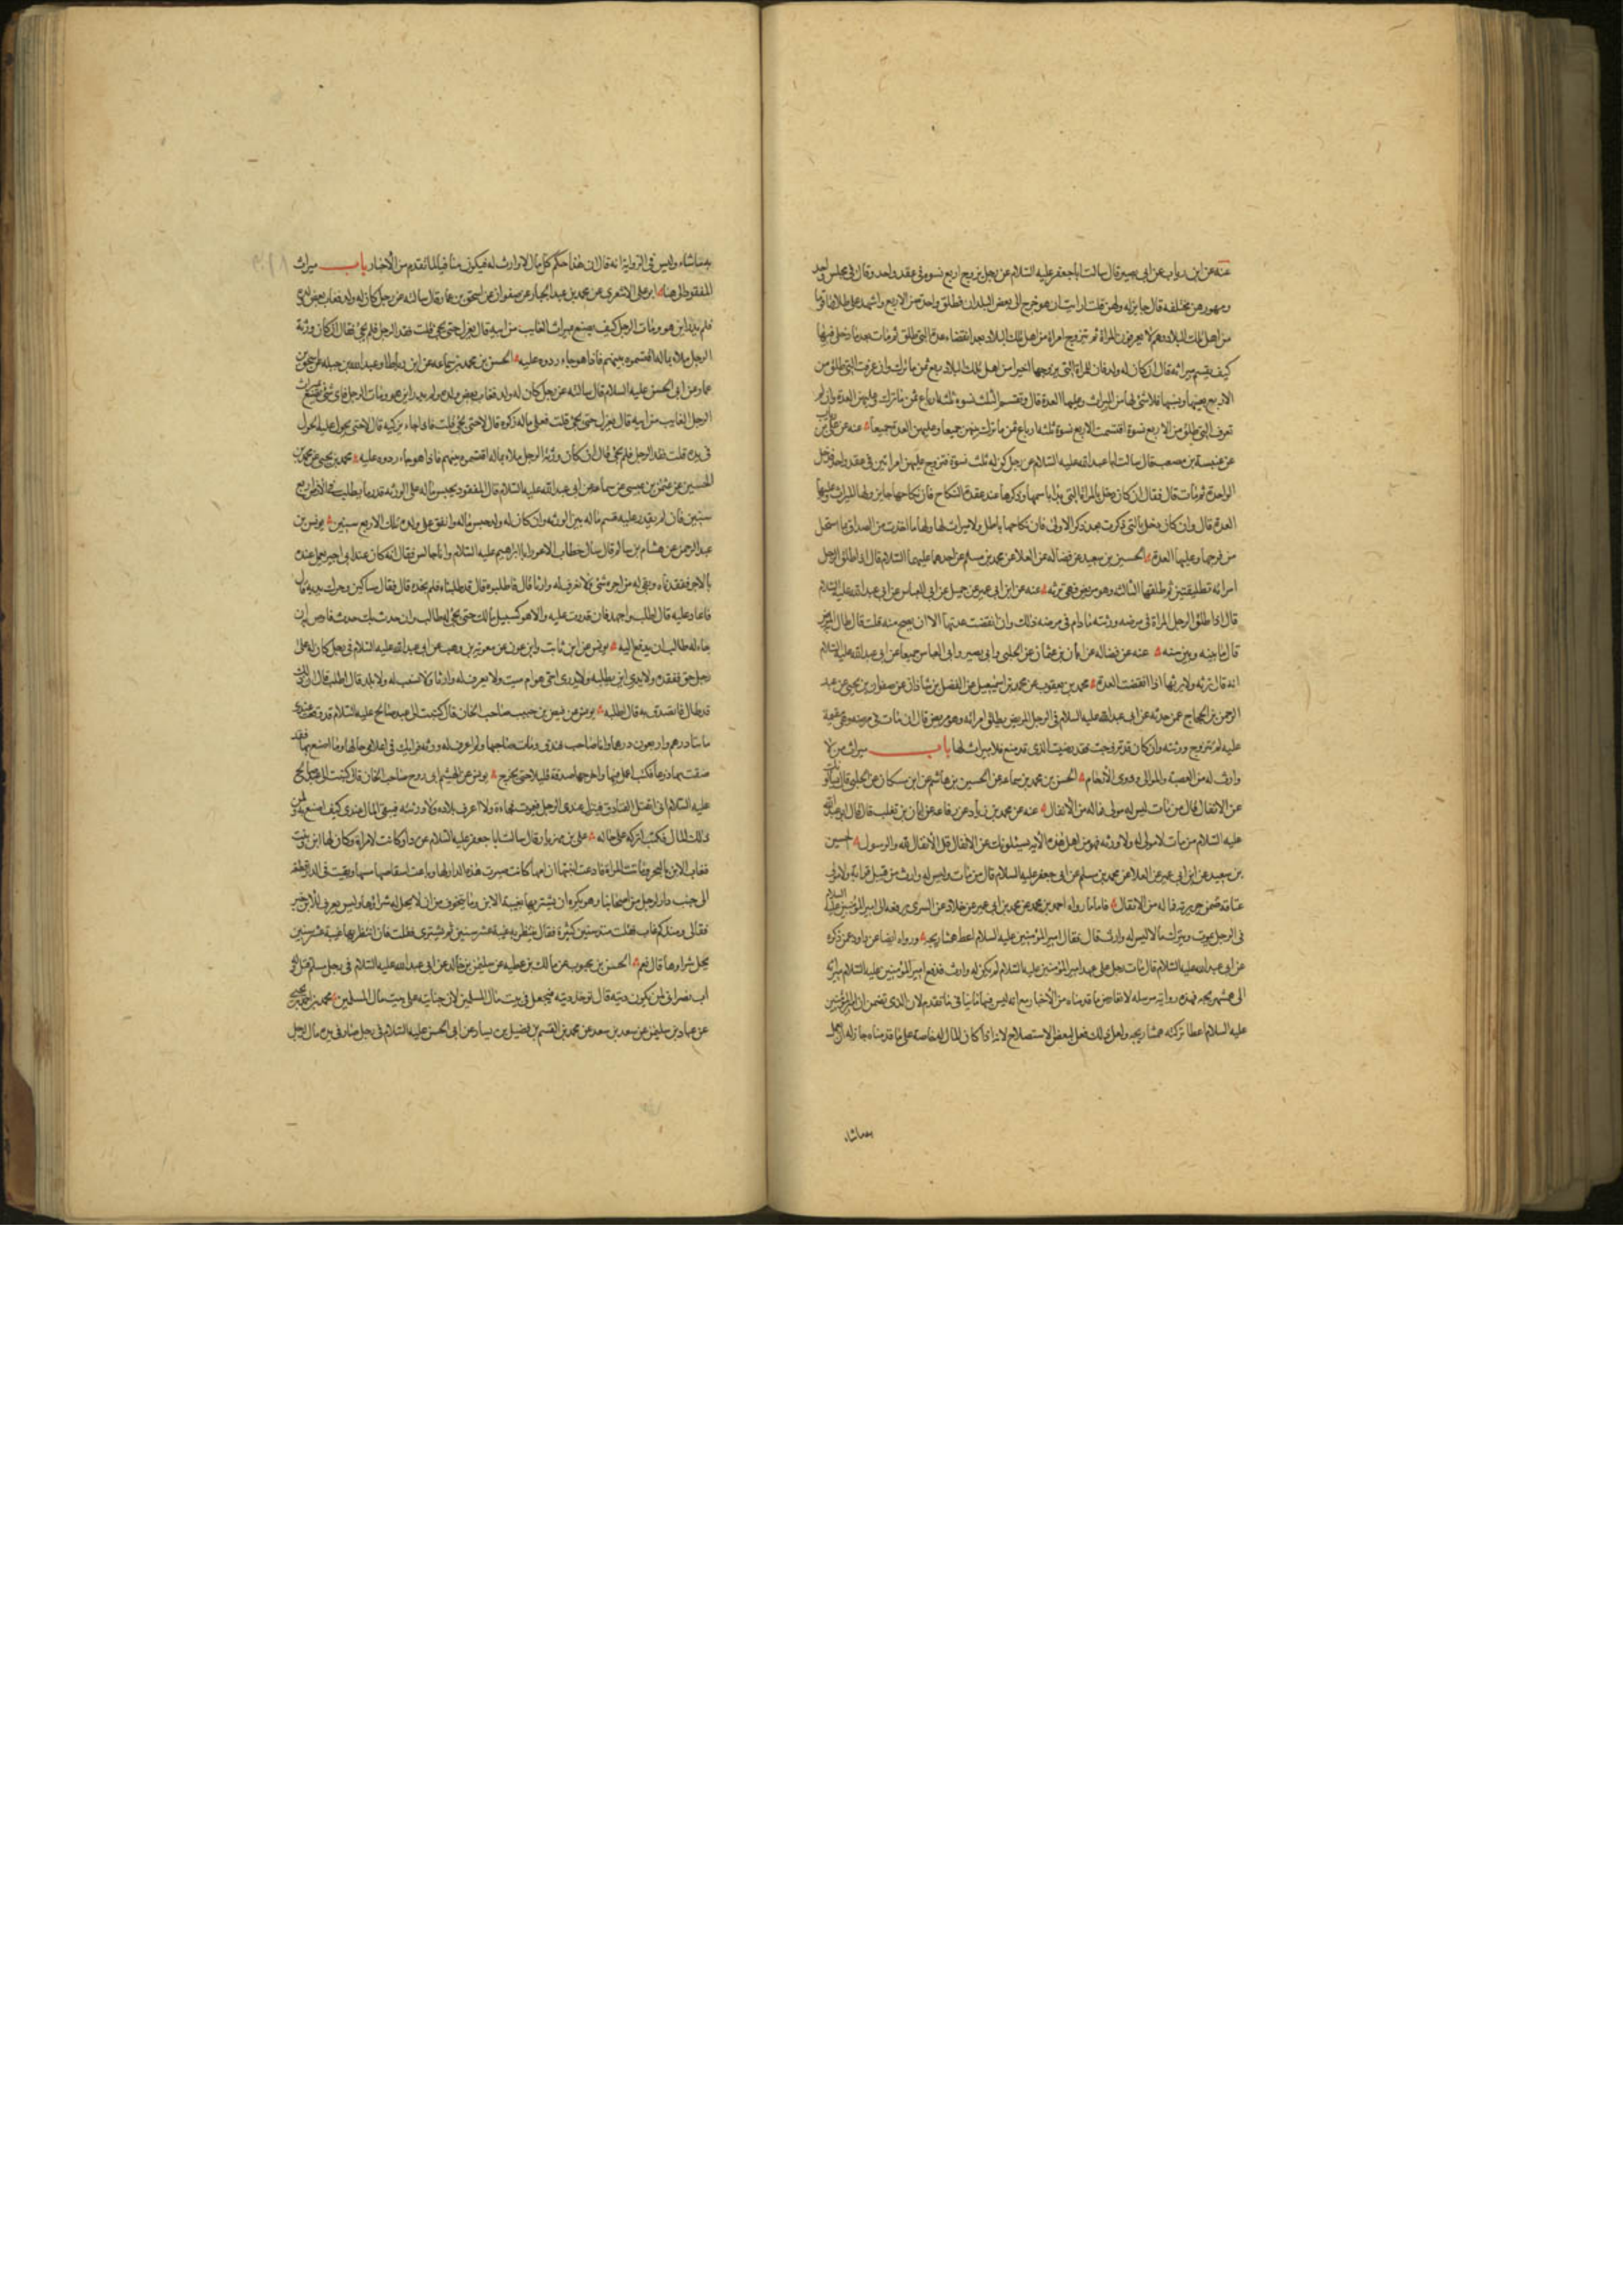 عنه عن ابن رياب عن ابى بصير قال سالت ابا جعفر عليه السلام عن رجل تزوج اربع نسوة فى عقد واحد وقال فى مجلس واحد
ومهورهن مختلفه قال جايز له ولهن قلت ارايت ان هو خرج الى بعض البلدان فطلق واحدة من الاربع واشهد على طلاقها قوما
من اهل تلك البلاد وهم لا يعرفون المراة ثم تزوج امراة من اهل تلك البلاد بعد انقضاء عدة التى طلق ثم مات بعد ما دخل بها
كيف يقسم ميراثه قال ان كان له ولد فان للمراة التى تزوجها اخيرا من اهل تلك البلاد ربع ثمن ما ترك وان عرفت التى طلق من
الاربع بعينها ونسبها فلا شئ لها من الميراث وعليها العدة قال وتقسم الثلث نسوة ثلثه ارباع ثمن ما ترك وعليهن العدة وان لم
تعرف التى طلق من الاربع نسوة اقتسمت الاربع نسوة ثلثه ارباع ثمن ما ترك بينهن جميعا وعليهن العدة جميعا عنه عن على بن رياب
عن عنبسة بن مصعب قال سالت ابا عبد الله عليه السلام عن رجل كن له ثلث نسوة فتزوج عليهن امراتين فى عقد واحد فدخل
الواحدة ثم مات قال فقال ان كان دخل بالمراة التى بدا باسمها وذكرها عند عقدة النكاح فان نكاحها جايز ولها الميراث وعليها
العدة قال وان كان دخل بالتى ذكرت بعد ذكر الاولى فان نكاحها باطل ولا ميراث لها ولها ما اخذت من الصداق بما استحل
من فرجها وعليها العدة الحسين بن سعيد عن فضاله عن العلا عن محمد بن مسلم عن احدهما عليهما السلام قال اذا طلق الرجل
امراته تطليقتين ثم طلقها الثالثه وهو مريض فهى ترثه عنه عن ابن ابى عمير عن جميل عن ابى العباس عن ابى عبد الله عليه السلام
قال اذا طلق الرجل المراة فى مرضه ورثته ما دام فى مرضه ذلك وان انقضت عدتها الا ان يصح منه قلت فان طال به المرض
قال ما بينه وبين سنه عنه عن فضاله عن ابان بن عثمان عن الحلبى وابى بصير وابى العباس جميعا عن ابى عبد الله عليه السلام
انه قال ترثه ولا يرثها اذا انقضت العدة محمد بن يعقوب عن محمد بن اسمعيل عن الفضل بن شاذان عن صفوان بن يحيى عن عبد
الرحمن بن الحجاج عمن حدثه عن ابى عبد الله عليه السلام فى الرجل المريض يطلق امراته وهو مريض قال ان مات فى مرضه وهى مقيمة
عليه لم تتزوج ورثته وان كان قد تزوجت فقد رضيت الذى قد صنع فلا ميراث لها باب ميراث من لا
وارث له من العصبة والموالى وذوى الأرحام الحسن بن محمد بن سماعه عن الحسين بن هاشم عن ابن مسكان عن الحلبى قال سألته
عن الانفال قال من مات ليس له مولى فماله من الأنفال عنه عن محمد بن زياد عن رفاعه عن ابان بن تغلب قال قال ابو عبد الله
عليه السلام من مات لا مولى له ولا ورثه فهو من اهل هذه الآيه يسئلونك عن الانفال قل الأنفال لله والرسول الحسين
بن سعيد عن ابن ابى عمير عن العلا عن محمد بن مسلم عن ابى جعفر عليه السلام قال من مات وليس له وارث من قبل قرابته ولا مولى
عتاقه ضمن جريرته فماله من الانفال فاما ما رواه احمد بن محمد عن محمد بن ابى عمير عن خلاد عن السرى يرفعه الى امير المؤمنين عليه السلام
فى الرجل يموت ويترك مالا ليس له وارث قال فقال امير المؤمنين عليه السلام اعط همشاريجه ورواه ايضا عن داود عن ذكره
عن ابى عبد الله عليه السلام قال مات رجل على عهد امير المؤمنين عليه السلام لم يكن له وارث فدفع امير المؤمنين عليه السلام ميراثه
الى همشهريجه فهذه روايه مرسله لا تعارض ما قدمناه من الأخبار مع انه ليس فيها ما ينافى ما تقدم لان الذى تضمن ان امير المؤمنين
عليه السلام اعطا تركته همشاريجه ولعل ذلك فعل لبعض الاستصلاح لانه اذا كان المال له خاصة على ما قدمناه جاز له ان يعمل
به ما شاء
به ما شاء وليس فى الرواية انه قال ان هذا حكم كل مال لا وارث له فيكون منافيا لما تقدم من الأخبار باب ميراث
المفقود ابو على الاشعرى عن محمد بن عبد الجبار عن صفوان عن اسحق بن عمار قال سالته عن رجل كان له ولد فغاب بعض ولده
فلم يدر اين هو ومات الرجل كيف يصنع بميراث الغايب من ابيه قال يعزل حتى يجئ قلت فقد الرجل فلم يجئ فقال ان كان ورثة
الرجل ملاء بماله اقتسموه بينهم فاذا هو جاء ردوه عليه الحسن بن محمد بن سماعه عن ابن رباط وعبد الله بن جبله عن اسحق بن
عمار عن ابى الحسن عليه السلام قال سالته عن رجل كان له ولد فغاب بعض ولده ولم يدر اين هو ومات الرجل فاى شئ يصنع بميراث
الرجل الغايب من ابيه قال يعزل حتى يجئ قلت فعلى ماله زكوه قال لا حتى يجئ قلت فاذا جاء يزكيه قال لا حتى يحول عليه الحول
فى يده قلت فقد الرجل فلم يجئ قال ان كان ورثة الرجل ملاء بماله اقتسموه بينهم فاذا هو جاء ردوه عليه محمد بن يحيى عن محمد بن
الحسين عن عثمن بن عيسى عن سماعه عن ابى عبد الله عليه السلام قال المفقود يحبس ماله على الورثه قدر ما يطلب فى الارض اربع
سنين فان لم يقدر عليه قسم ماله بين الورثه وان كان له ولد حبس ماله وانفق على ولده تلك الاربع سنين يونس بن
عبد الرحمن عن هشام بن سالم قال سال خطاب الاعور ابا ابراهيم عليه السلام وانا جالس فقال انه كان عند ابى اجير يعمل عنده
بالاجر ففقدناه وبقى له من اجره شئ ولا نعرف له وارثا قال فاطلبوه قال قد طلبناه فلم نجده قال فقال مساكين وحرك يديه قال
فاعاد عليه قال اطلب واجهد فان قدرت عليه والا هو كسبيل مالك حتى يجئ له طالب وان حدث بك حدث فاوص به ان
جاء له طالب ان يدفع اليه يونس عن ابن ثابت وابن عون عن معويه بن وهب عن ابى عبد الله عليه السلام فى رجل كان له على
رجل حق ففقده ولا يدرى اين يطلبه ولا يدرى احى هو ام ميت ولا يعرف له وارثا ولا نسب له ولا بلد قال اطلب قال ان ذلك
قد طال فاتصدق به قال اطلبه يونس عن فيض بن حبيب صاحب الخان قال كتبت الى عبد صالح عليه السلام قد وقعت عندى
مائتا درهم واربعون درهما وانا صاحب فندق ومات صاحبها ولم اعرف له ورثه فرايك فى اعلامى حالها وما اصنع بها فقد
ضقت بها ذرعا فكتب اعمل فيها واخرجها صدقة قليلا حتى يخرج يونس عن الهيثم ابى روح صاحب الخان قال كتبت الى عبد صالح
عليه السلام انى اتقبل الفنادق فينزل عندى الرجل فيموت فجاءة ولا اعرف بلاده ولا ورثته فيبقى المال عندى كيف اصنع به ولمن
ذلك المال فكتب اتركه على حاله على بن مهزيار قال سالت ابا جعفر عليه السلام عن دار كانت لامراة وكان لها ابن وبنت
فغاب الابن بالبحر وماتت المراة فادعت ابنتها ان امها كانت صيرت هذه الدار لها وباعت اشقاصا منها وبقيت فى الدار قطعة
الى جنب دار لرجل من اصحابنا وهو يكره ان يشتريها لغيبة الابن وما يتخوف من ان لا يحل له شراؤها وليس يعرف للابن خبر
فقال لى ومنذ كم غاب فقلت منذ سنين كثيرة فقال ينتظر به غيبة عشر سنين ثم يشترى فقلت فان انتظر بها غيبة عشر سنين
يحل شراوها قال نعم الحسن بن محبوب عن مالك بن عطيه عن سليمن بن خالد عن ابى عبد الله عليه السلام فى رجل مسلم قتل وله
اب نصرانى لمن يكون ديته قال توخذ ديته فيجعل فى بيت مال المسلمين لان جنايته على بيت مال المسلمين محمد بن احمد بن يحيى
عن عباد بن سليمن عن سعد بن سعد عن محمد بن القسم بن فضيل بن يسار عن ابى الحسن عليه السلام فى رجل صار فى يده مال لرجل